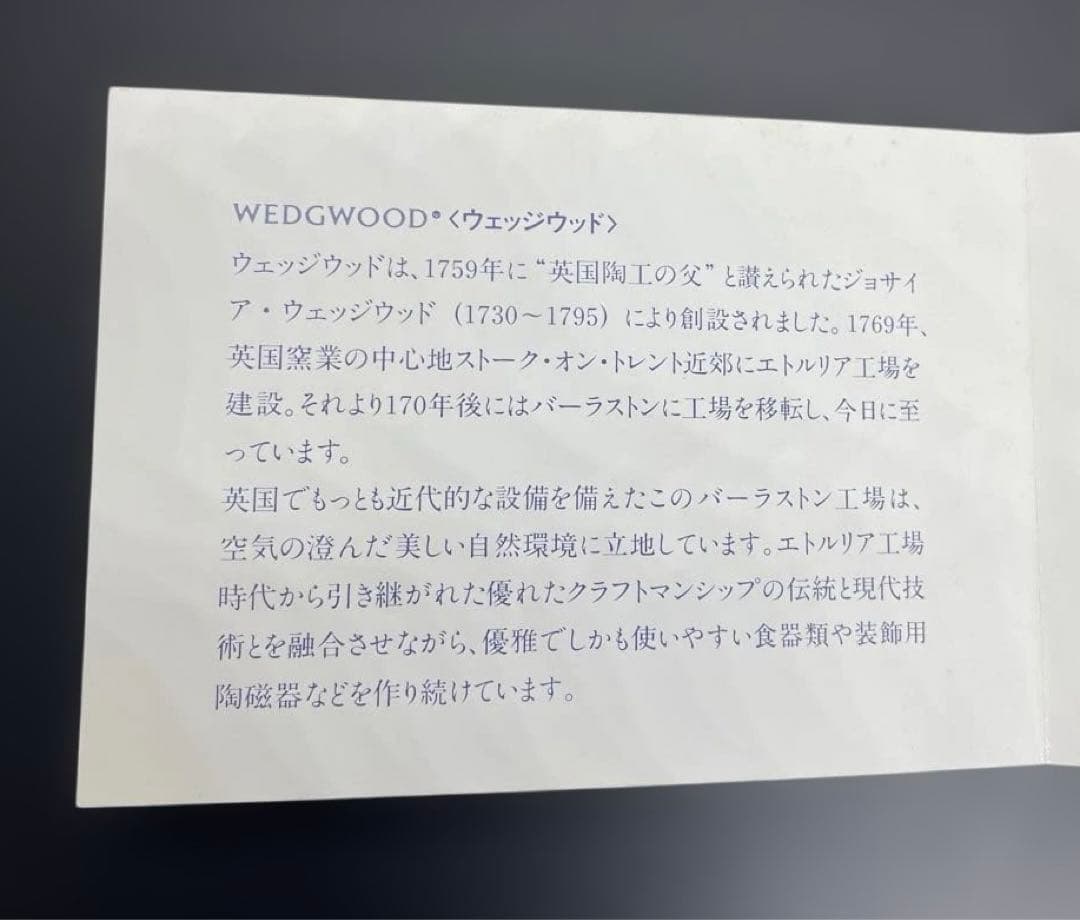 WEDGWOOD®〈ウェッジウッド〉
ウェッジウッドは、1759年に“英国陶工の父”と讃えられたジョサイ
ア・ウェッジウッド（1730〜1795）により創設されました。1769年、
英国窯業の中心地ストーク・オン・トレント近郊にエトルリア工場を
建設。それより170年後にはバーラストンに工場を移転し、今日に至
っています。
英国でもっとも近代的な設備を備えたこのバーラストン工場は、
空気の澄んだ美しい自然環境に立地しています。エトルリア工場
時代から引き継がれた優れたクラフトマンシップの伝統と現代技
術とを融合させながら、優雅でしかも使いやすい食器類や装飾用
陶磁器などを作り続けています。